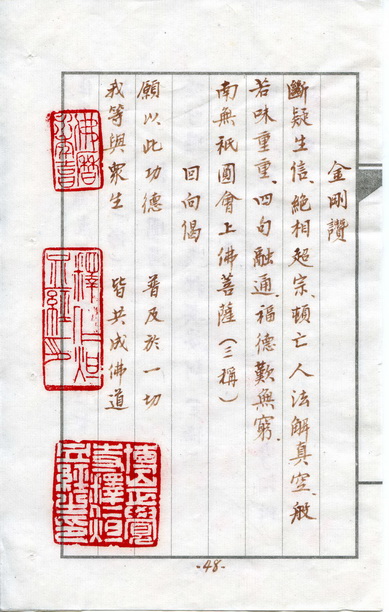 金剛讚
斷疑生信、絕相超宗、頓亡人法解真空、般
若味重重、四句融通、福德歎無窮、
南無祇園會上佛菩薩（三稱）
回向偈
願以此功德 普及於一切
我等與眾生 皆共成佛道
-48-